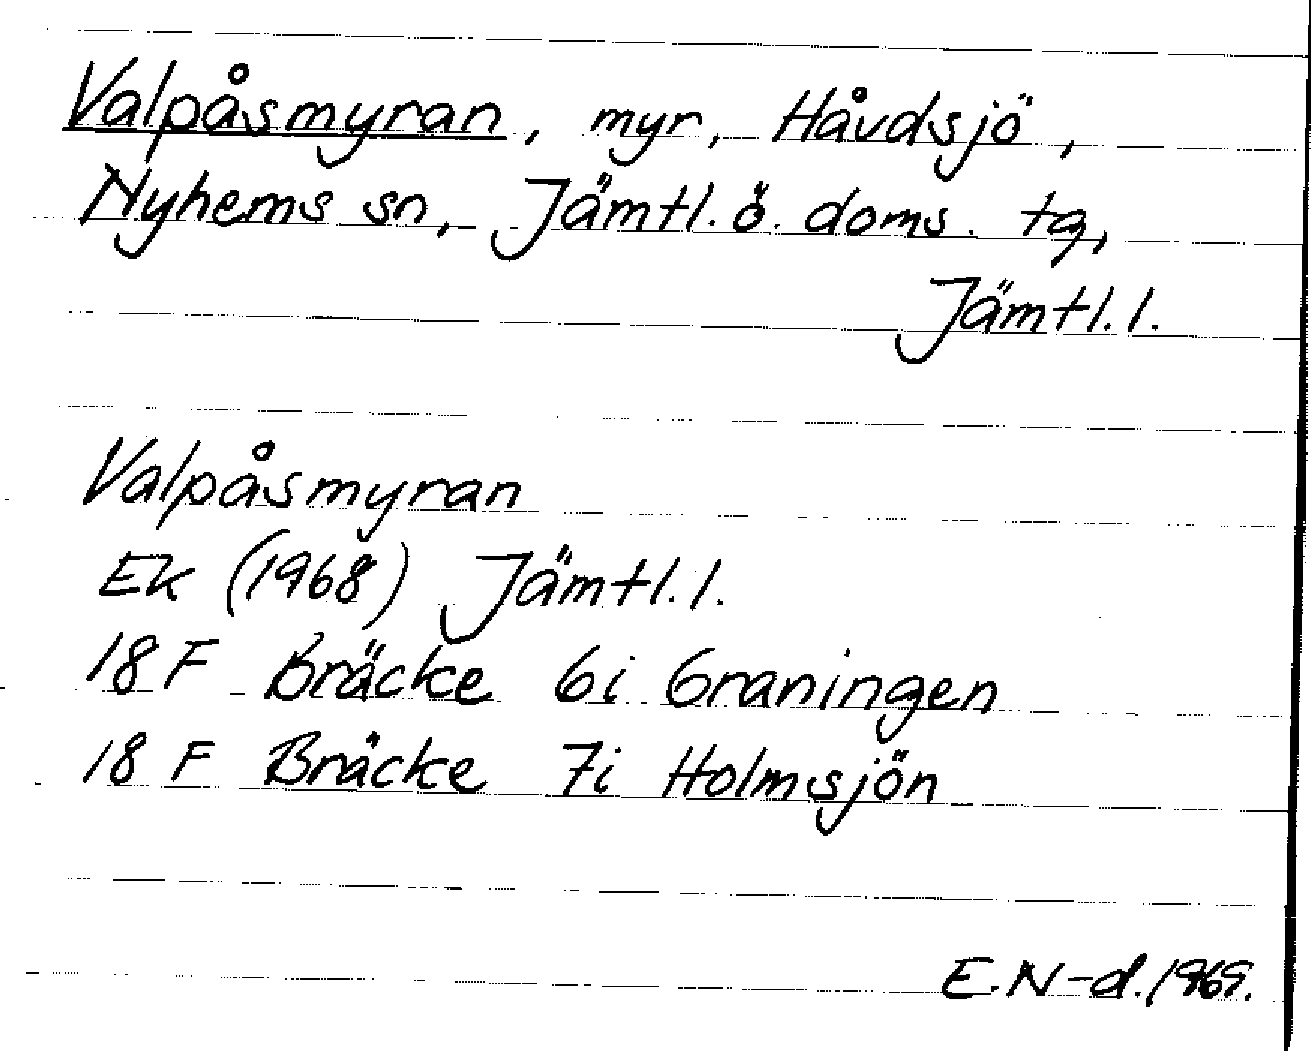 Valpåsmyran, myr, Håvdsjö,
Nyhems sn, Jämtl. ö. doms. tg,
Jämtl. l.
Valpåsmyran
EK (1968) Jämtl. l.
18 F Bräcke 6i Graningen
18 F Bräcke 7i Holmsjön
E. N-d. 1969.